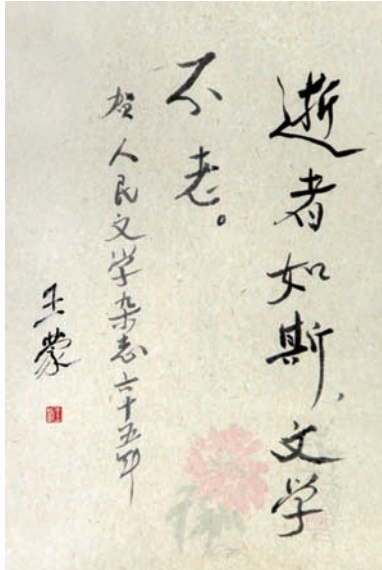 逝者如斯,文学
不老。
贺人民文学杂志六十五年
王蒙